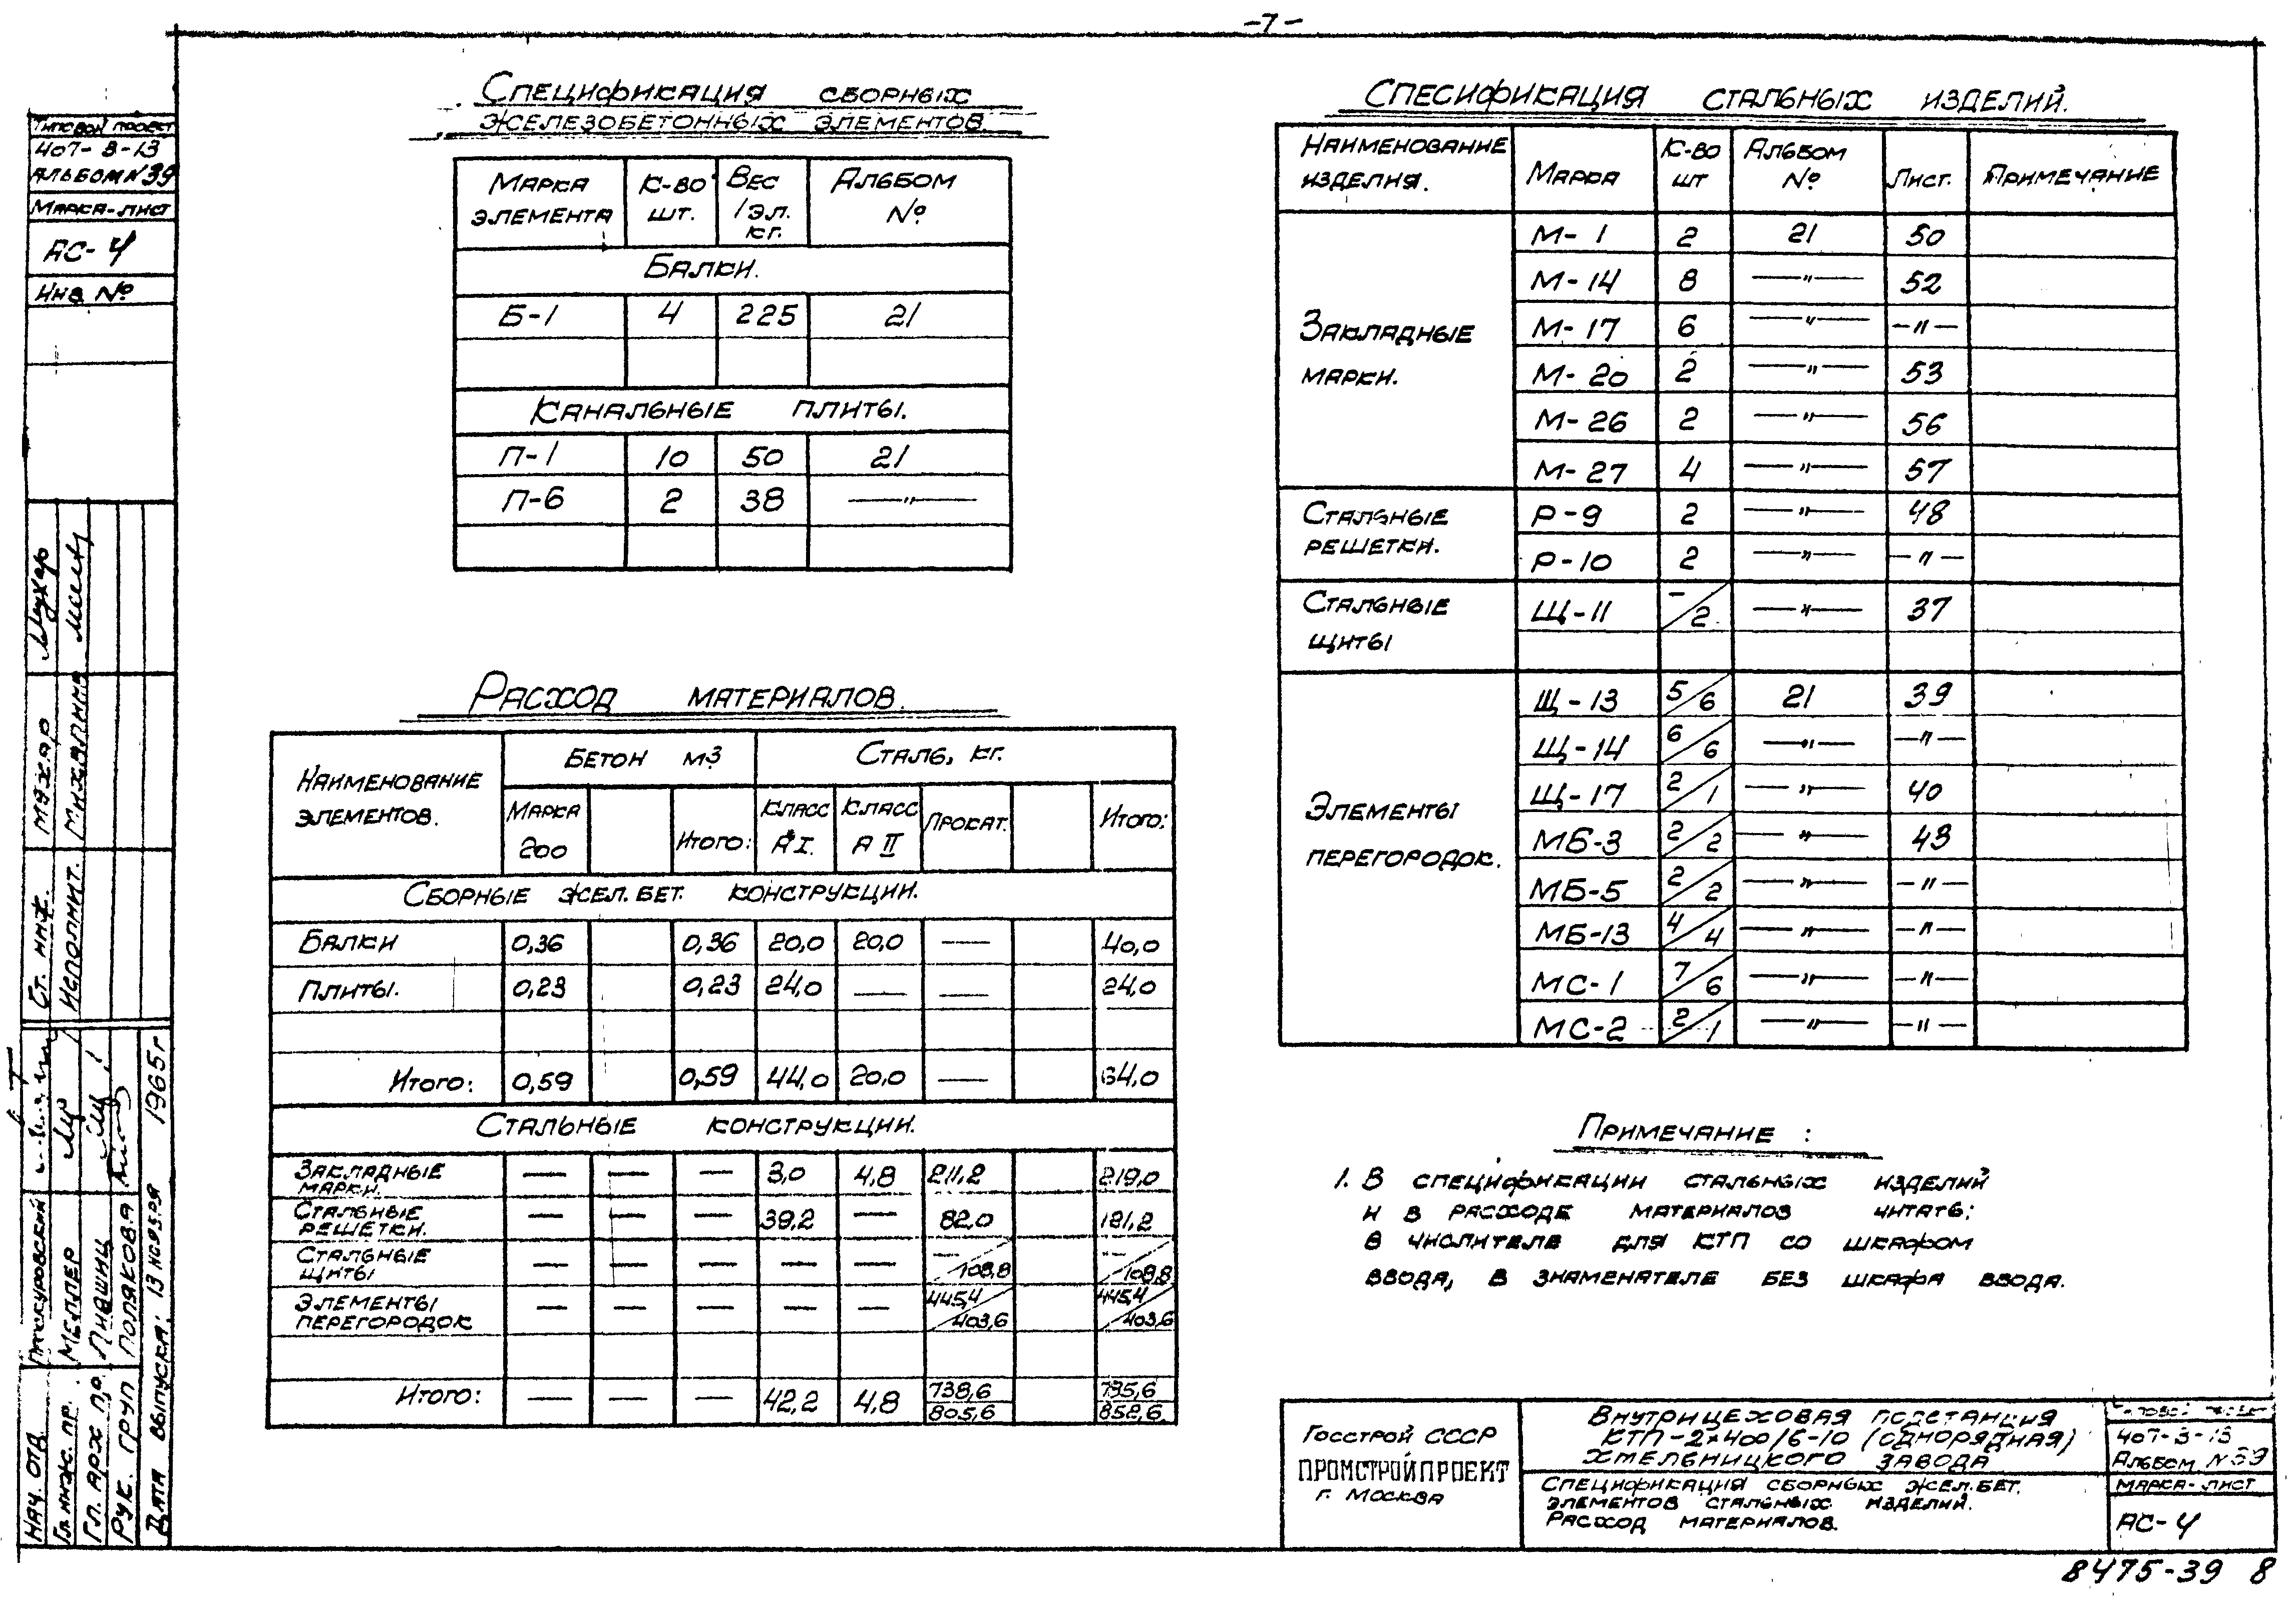 -7-
Типовой проект
407-3-13
Альбом №39
Марка-лист
АС-4
Инв №
Спецификация сборных
железобетонных элементов.
Марка элемента | К-во шт. | Вес 1 эл. кг. | Альбом №
Балки.
Б-1 4 225 21
Канальные плиты.
П-1 10 50 21
П-6 2 38 —"—
Расход материалов.
Наименование элементов. | Бетон м3 | Сталь, кг.
Марка 200 | Итого: | Класс А I. | Класс А II | Прокат. | Итого:
Сборные жел.бет. конструкции.
Балки 0,36 0,36 20,0 20,0 — 40,0
Плиты. 0,23 0,23 24,0 — — 24,0
Итого: 0,59 0,59 44,0 20,0 — 64,0
Стальные конструкции.
Закладные марки. — — — 3,0 4,8 211,2 219,0
Стальные решетки. — — — 39,2 — 82,0 121,2
Стальные щиты — — — — — —/108,8 —/108,8
Элементы перегородок — — — — — 445,4/403,6 445,4/403,6
Итого: — — — 42,2 4,8 738,6/805,6 785,6/852,6
Спесификация стальных изделий.
Наименование изделия. | Марка | К-во шт | Альбом № | Лист. | Примечание
Закладные марки.
М-1 2 21 50
М-14 8 —"— 52
М-17 6 —"— —"—
М-20 2 —"— 53
М-26 2 —"— 56
М-27 4 —"— 57
Стальные решетки.
Р-9 2 —"— 48
Р-10 2 —"— —"—
Стальные щиты
Щ-11 -/2 —"— 37
Элементы перегородок.
Щ-13 5/6 21 39
Щ-14 6/6 —"— —"—
Щ-17 2/1 —"— 40
МБ-3 2/2 —"— 43
МБ-5 2/2 —"— —"—
МБ-13 4/4 —"— —"—
МС-1 7/6 —"— —"—
МС-2 2/1 —"— —"—
Примечание :
1. В спецификации стальных изделий
и в расходе материалов читать:
в числителе для КТП со шкафом
ввода, в знаменателе без шкафа ввода.
Госстрой СССР
ПРОМСТРОЙПРОЕКТ
г. Москва
Внутрицеховая подстанция
КТП-2×400/6-10 (однорядная)
Хмельницкого завода
Спецификация сборных жел.бет.
элементов стальных изделий.
Расход материалов.
Типовой проект
407-3-13
Альбом №39
Марка-лист
АС-4
8475-39 8
Ст. инж. Мухар
Исполнит. Михалина
Нач. отд.
Гл. инж. пр. Меллер
Гл. арх пр. Лившиц
Рук. груп Полякова
Дата выпуска: 13 ноября 1965г